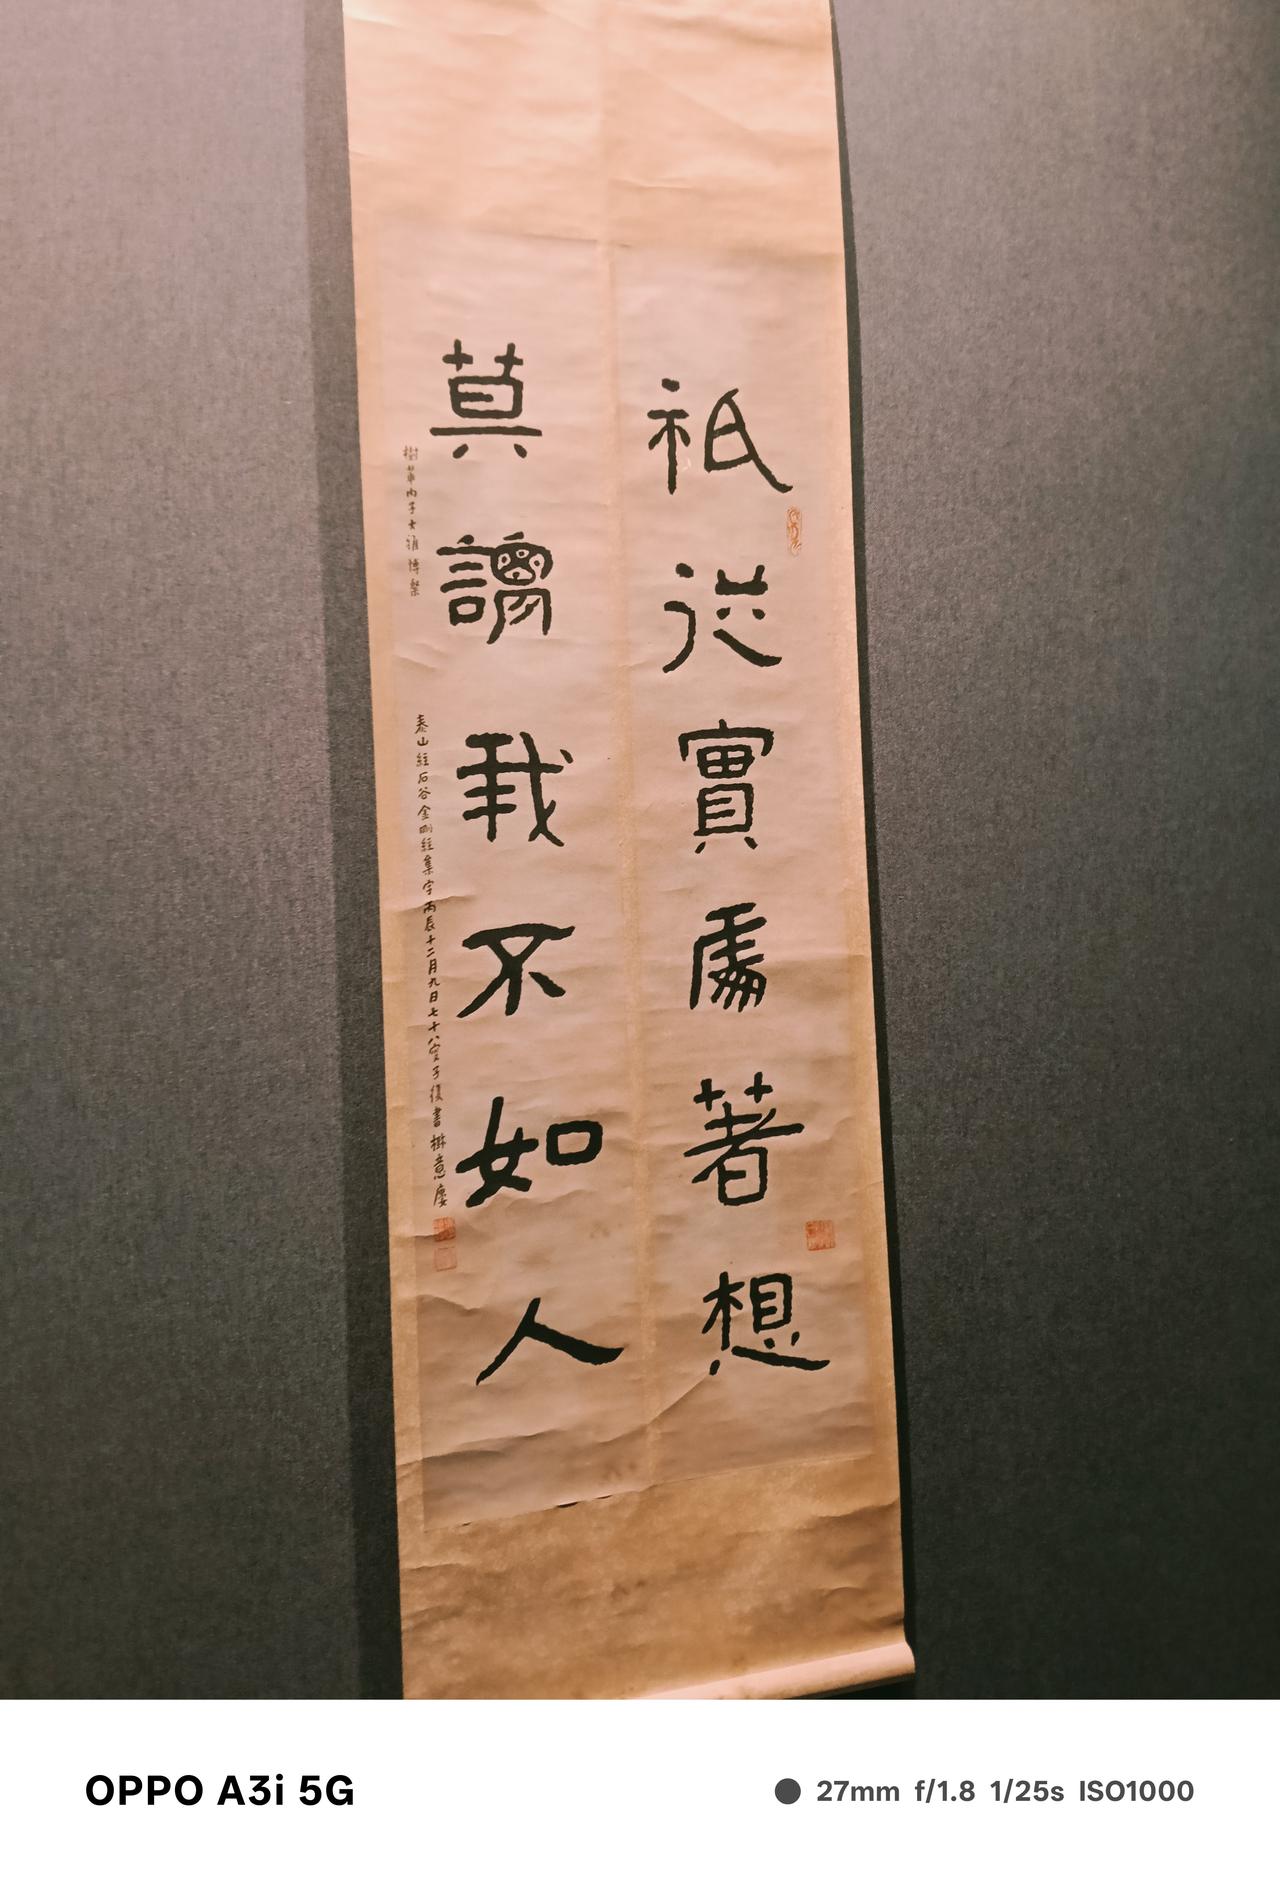 祇從實處著想
莫謂我不如人
泰山經石谷金剛經集字丙辰十二月九日七十八叟子復書
OPPO A3i 5G
27mm f/1.8 1/25s ISO1000